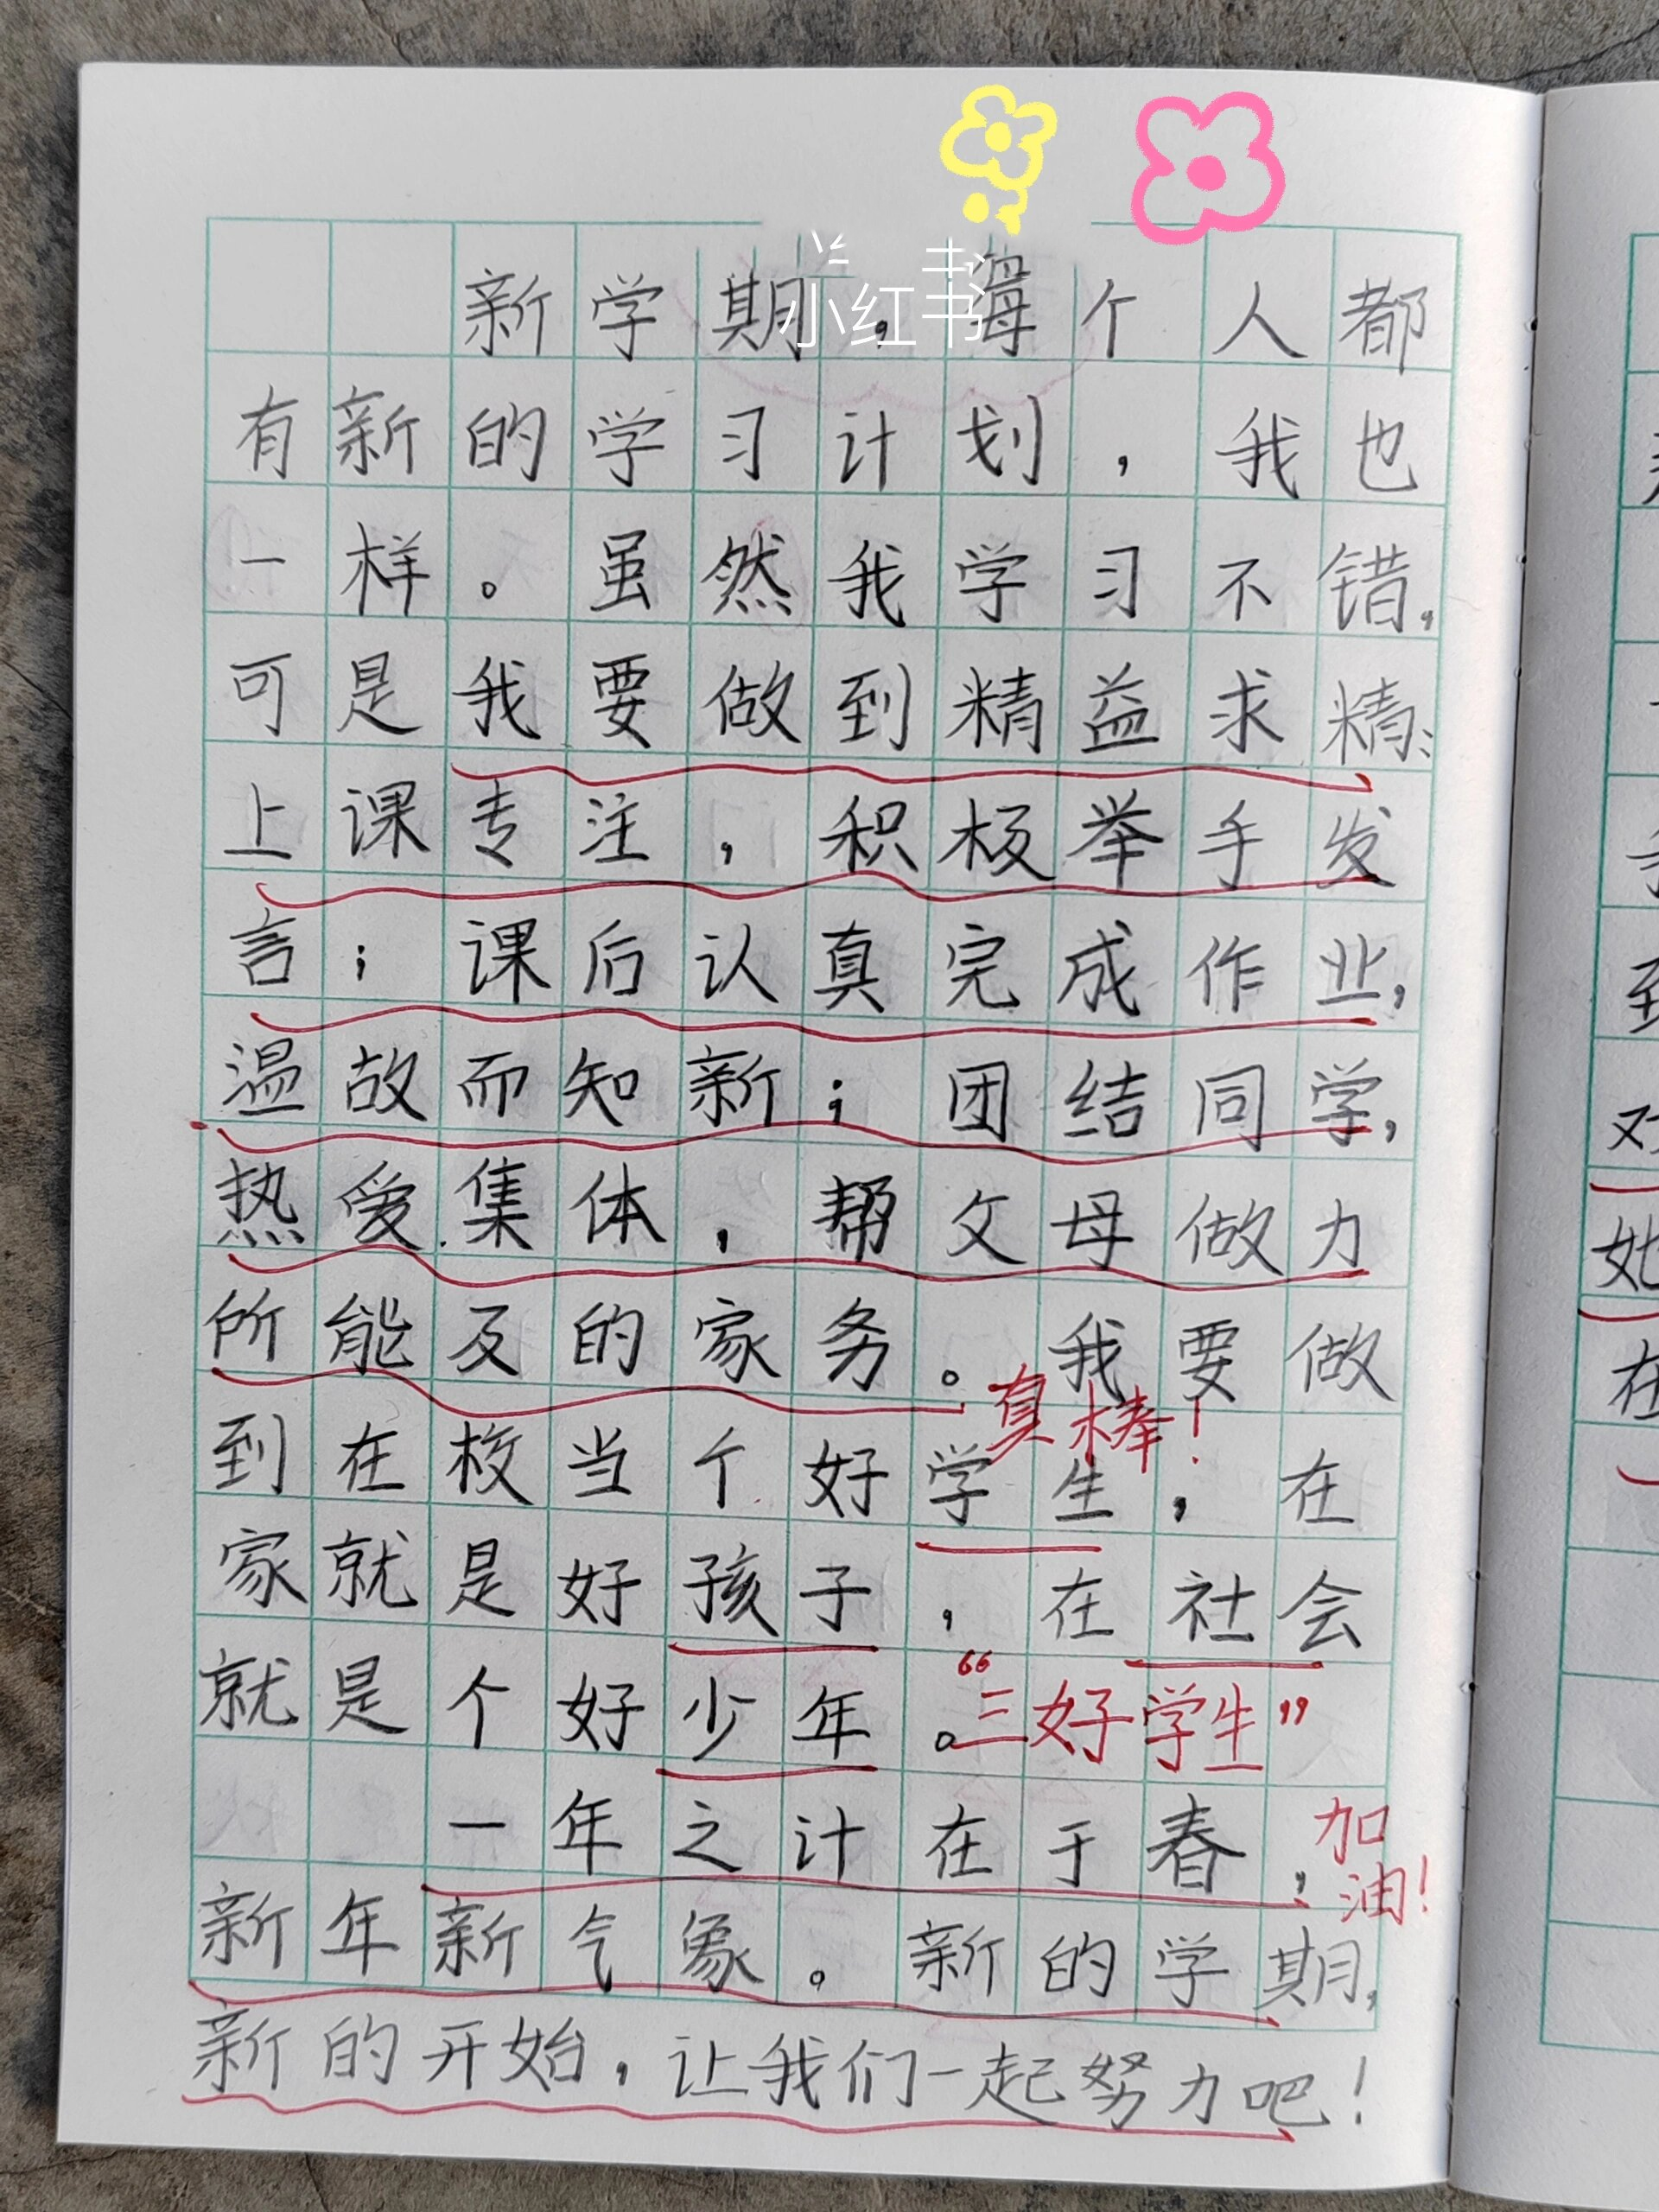 小红书
新学期，每个人都
有新的学习计划，我也
一样。虽然我学习不错，
可是我要做到精益求精：
上课专注，积极举手发
言；课后认真完成作业，
温故而知新；团结同学，
热爱集体，帮父母做力
所能及的家务。我要做
真棒！
到在校当个好学生，在
家就是好孩子，在社会
就是个好少年。“三好学生”
一年之计在于春，加油！
新年新气象。新的学期，
新的开始，让我们一起努力吧！
对
她
在